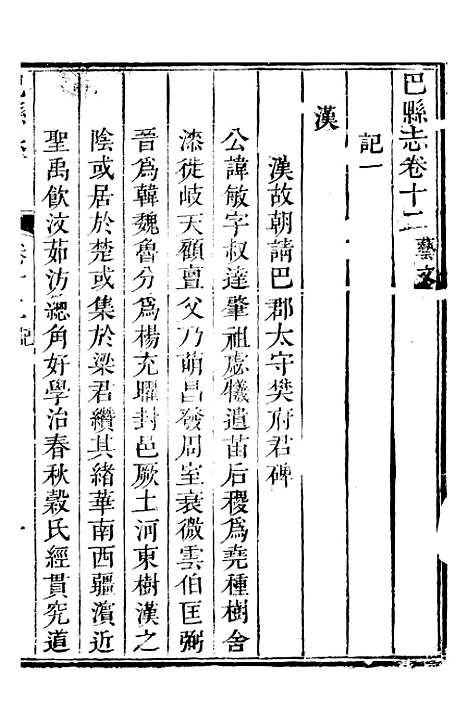 巴縣志卷十二藝文
記一
漢
漢故朝請巴郡太守樊府君碑
公諱敏字叔達肇祖慮犧遺苗后稷爲堯種樹舍
漆徙岐天顧亶父乃萌昌發周室衰微雲伯匡弼
晉爲韓魏魯分爲楊充曜封邑厥土河東樹漢之
陰或居於楚或集於梁君纘其緒華南西疆濱近
聖禹飲汶茹汸緦角好學治春秋穀氏經貫究道